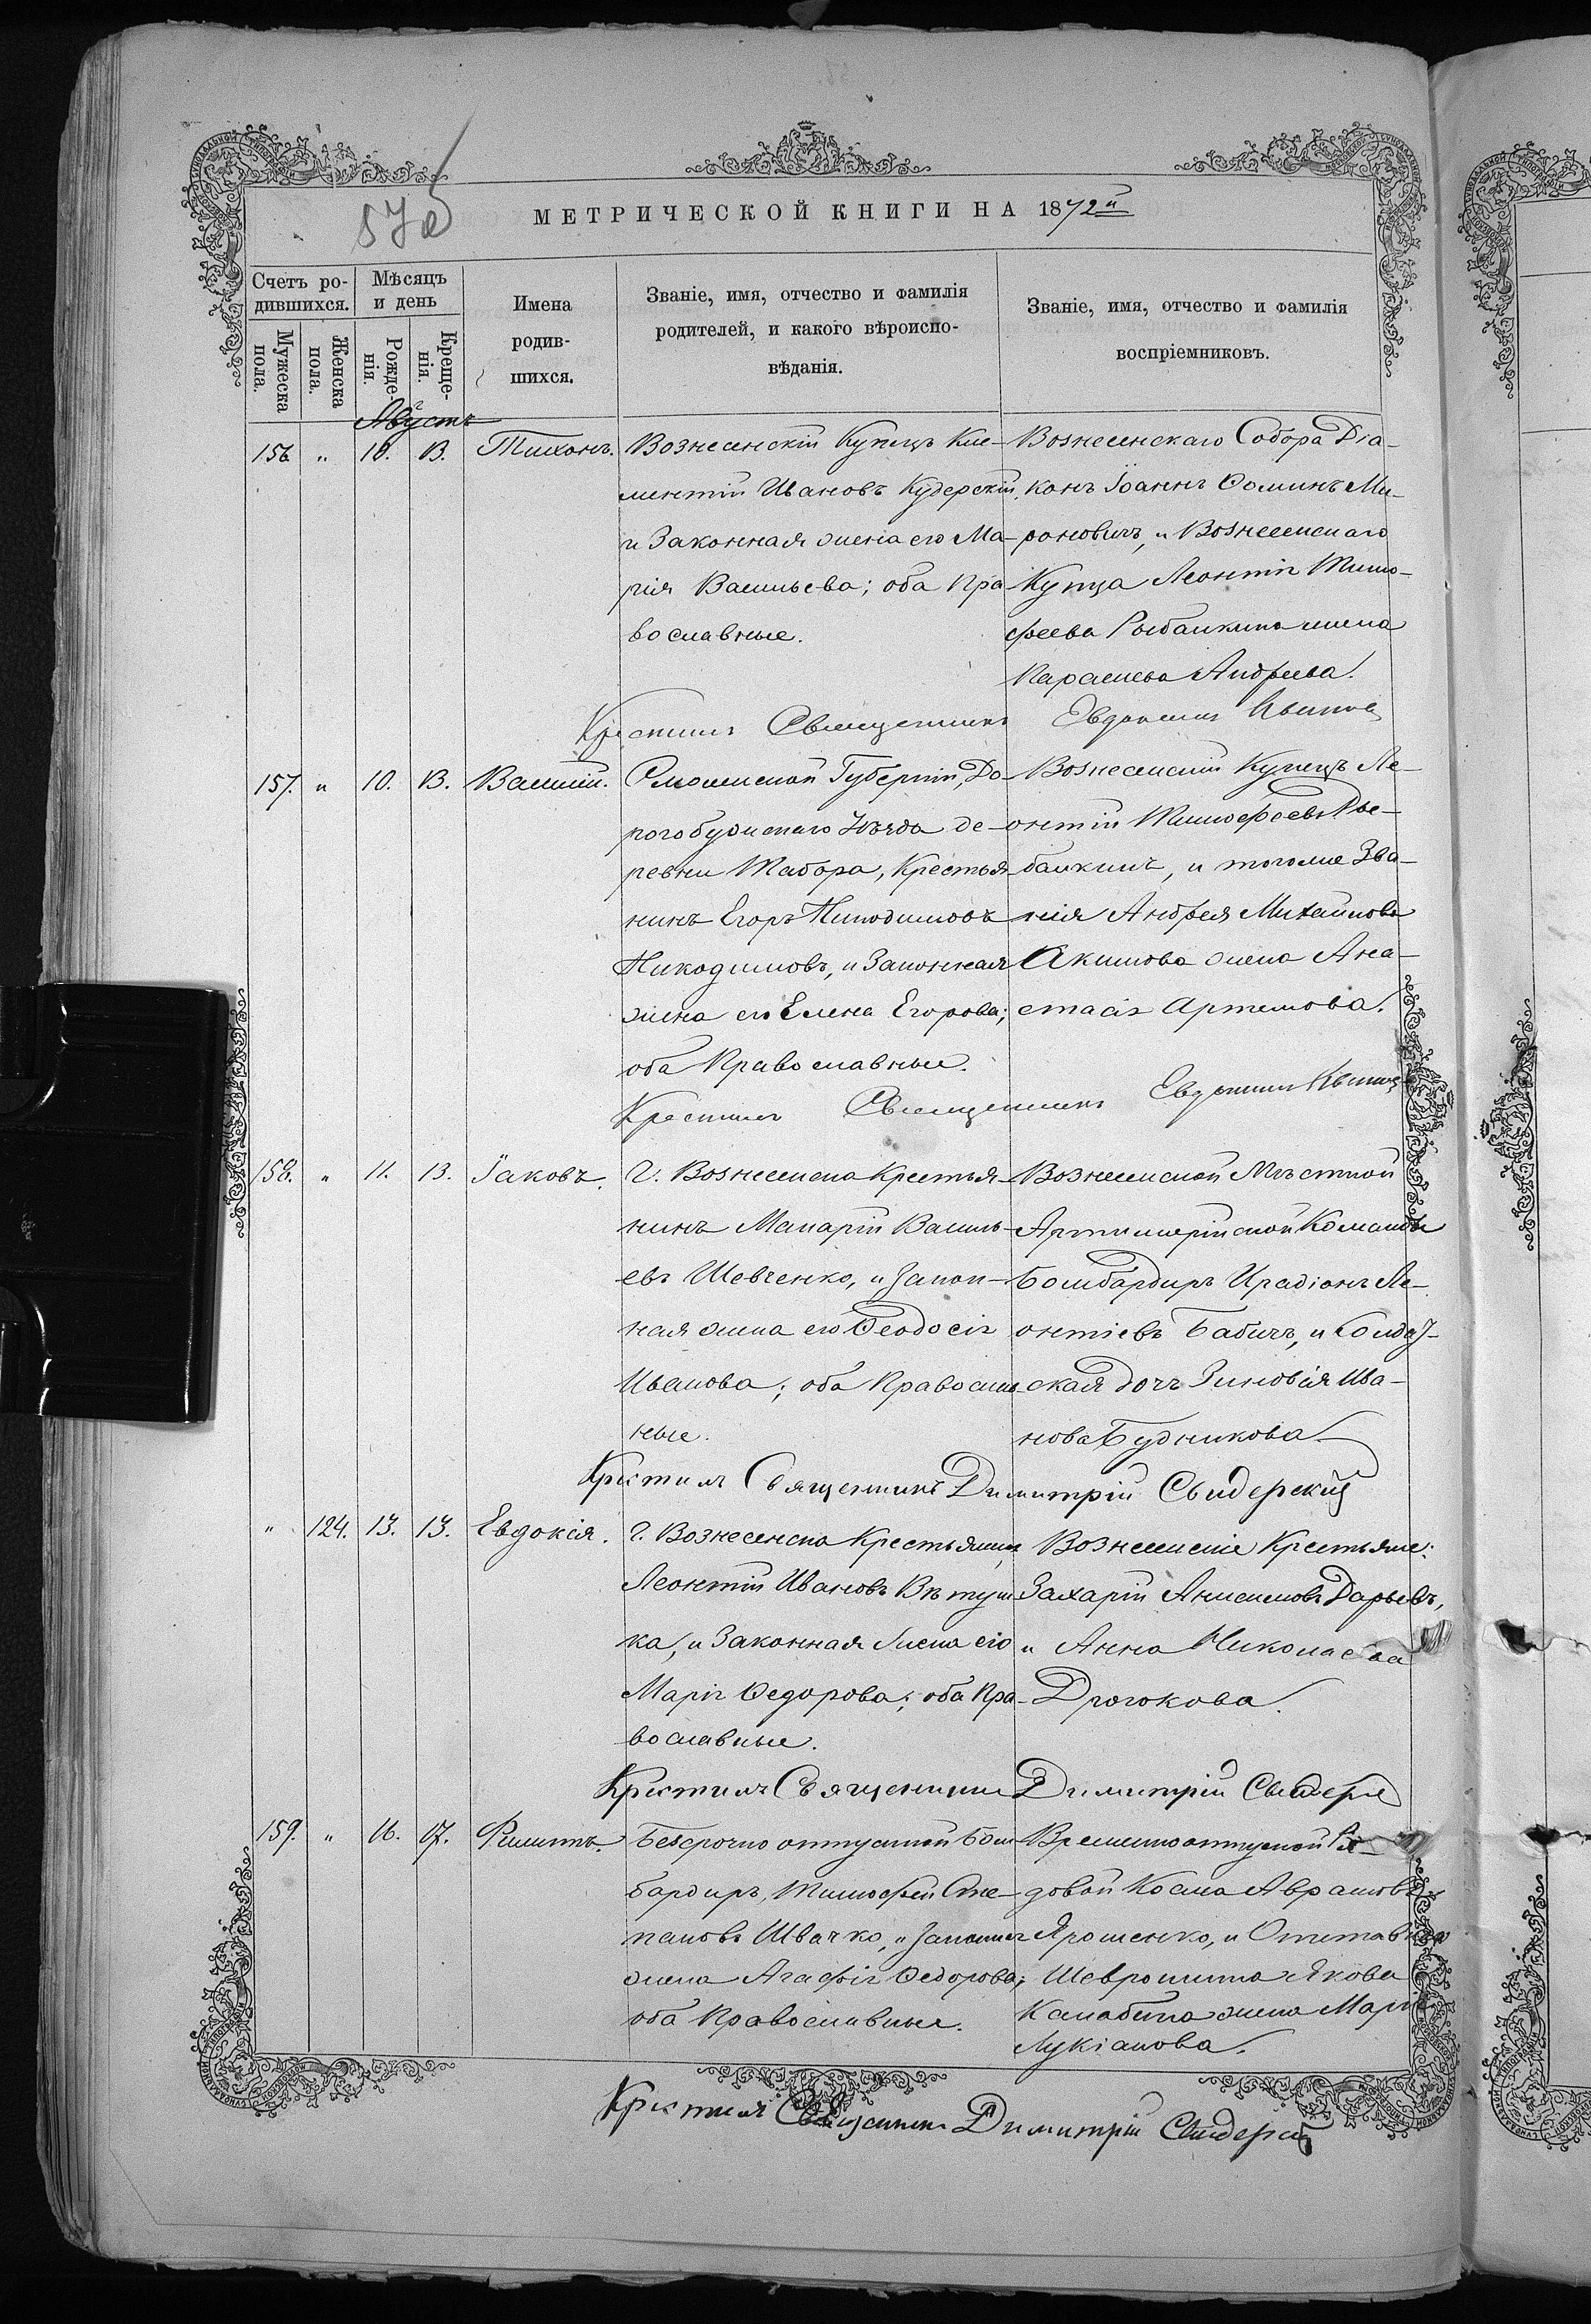 МЕТРИЧЕСКОЙ КНИГИ НА 1872й
Счетъ ро-
дившихся.
Мѣсяцъ
и день
Мужеска
пола.
Женска
пола.
Рожде-
нія.
Креще-
нія.
Имена
родив-
шихся.
Званіе, имя, отчество и фамилія
родителей, и какого вѣроиспо-
вѣданія.
Званіе, имя, отчество и фамилія
воспріемниковъ.
Августъ
156. " 10. 13. Тихонъ.
Вознесенскій Купецъ Кле-
ментій Ивановъ Кудерскій,
и Законная жена его Ма-
рія Васильева; оба Пра-
вославные.
Вознесенскаго Собора Діа-
конъ Іоаннъ Ѳоминъ Ми-
роновичъ, и Вознесенскаго
Купца Леонтія Тимо-
феева Рыбалкина жена
Параскева Андреева.
Крестилъ Священникъ Евдокимъ
157. " 10. 13. Василій.
Смоленской Губерніи, До-
рогобужскаго Уѣзда де-
ревни Табора, Крестья-
нинъ Егоръ Никодимовъ
Никодимовъ, и Законная
жена его Елена Егорова;
оба Православные.
Вознесенскій Купецъ Ле-
онтій Тимофеевъ Ры-
балкинъ, и тогоже Зва-
нія Андрея Михайлова
Акимова жена Ана-
стасія Артемова.
Крестилъ Священникъ Евдокимъ
158. " 11. 13. Іаковъ.
г. Вознесенска Крестья-
нинъ Макарій Василь-
евъ Шевченко, и Закон-
ная жена его Ѳеодосія
Иванова; оба Православ-
ные.
Вознесенской Мѣстной
Артиллерійской Команды
Бомбардиръ Иродіонъ Ле-
онтіевъ Бабичъ, и Солдат-
ская дочь Зиновія Ива-
нова Будникова.
Крестилъ Священникъ Димитрій Свидерскій
" 124. 13. 13. Евдокія.
г. Вознесенска Крестьянинъ
Леонтій Ивановъ Вѣтуш-
ка, и Законная Жена его
Марія Ѳедорова; оба Пра-
вославные.
Вознесенскіе Крестьяне:
Захарій Анисимовъ Дарьевъ,
и Анна Николаева
Дрогокова.
Крестилъ Священникъ Димитрій Свидерск
159. " 16. 17. Филиппъ.
Безсрочно отпускной Бом-
бардиръ, Тимофей Сте-
пановъ Швачко, и Законная
жена Агафія Ѳедорова;
оба Православные.
Временноотпускной Ря-
довой Косма Аврамовъ
Ярошенко, и Отставнаго
Яковa
жена Марія
Лукіанова.
Крестилъ Священникъ Димитрій Свидерскій